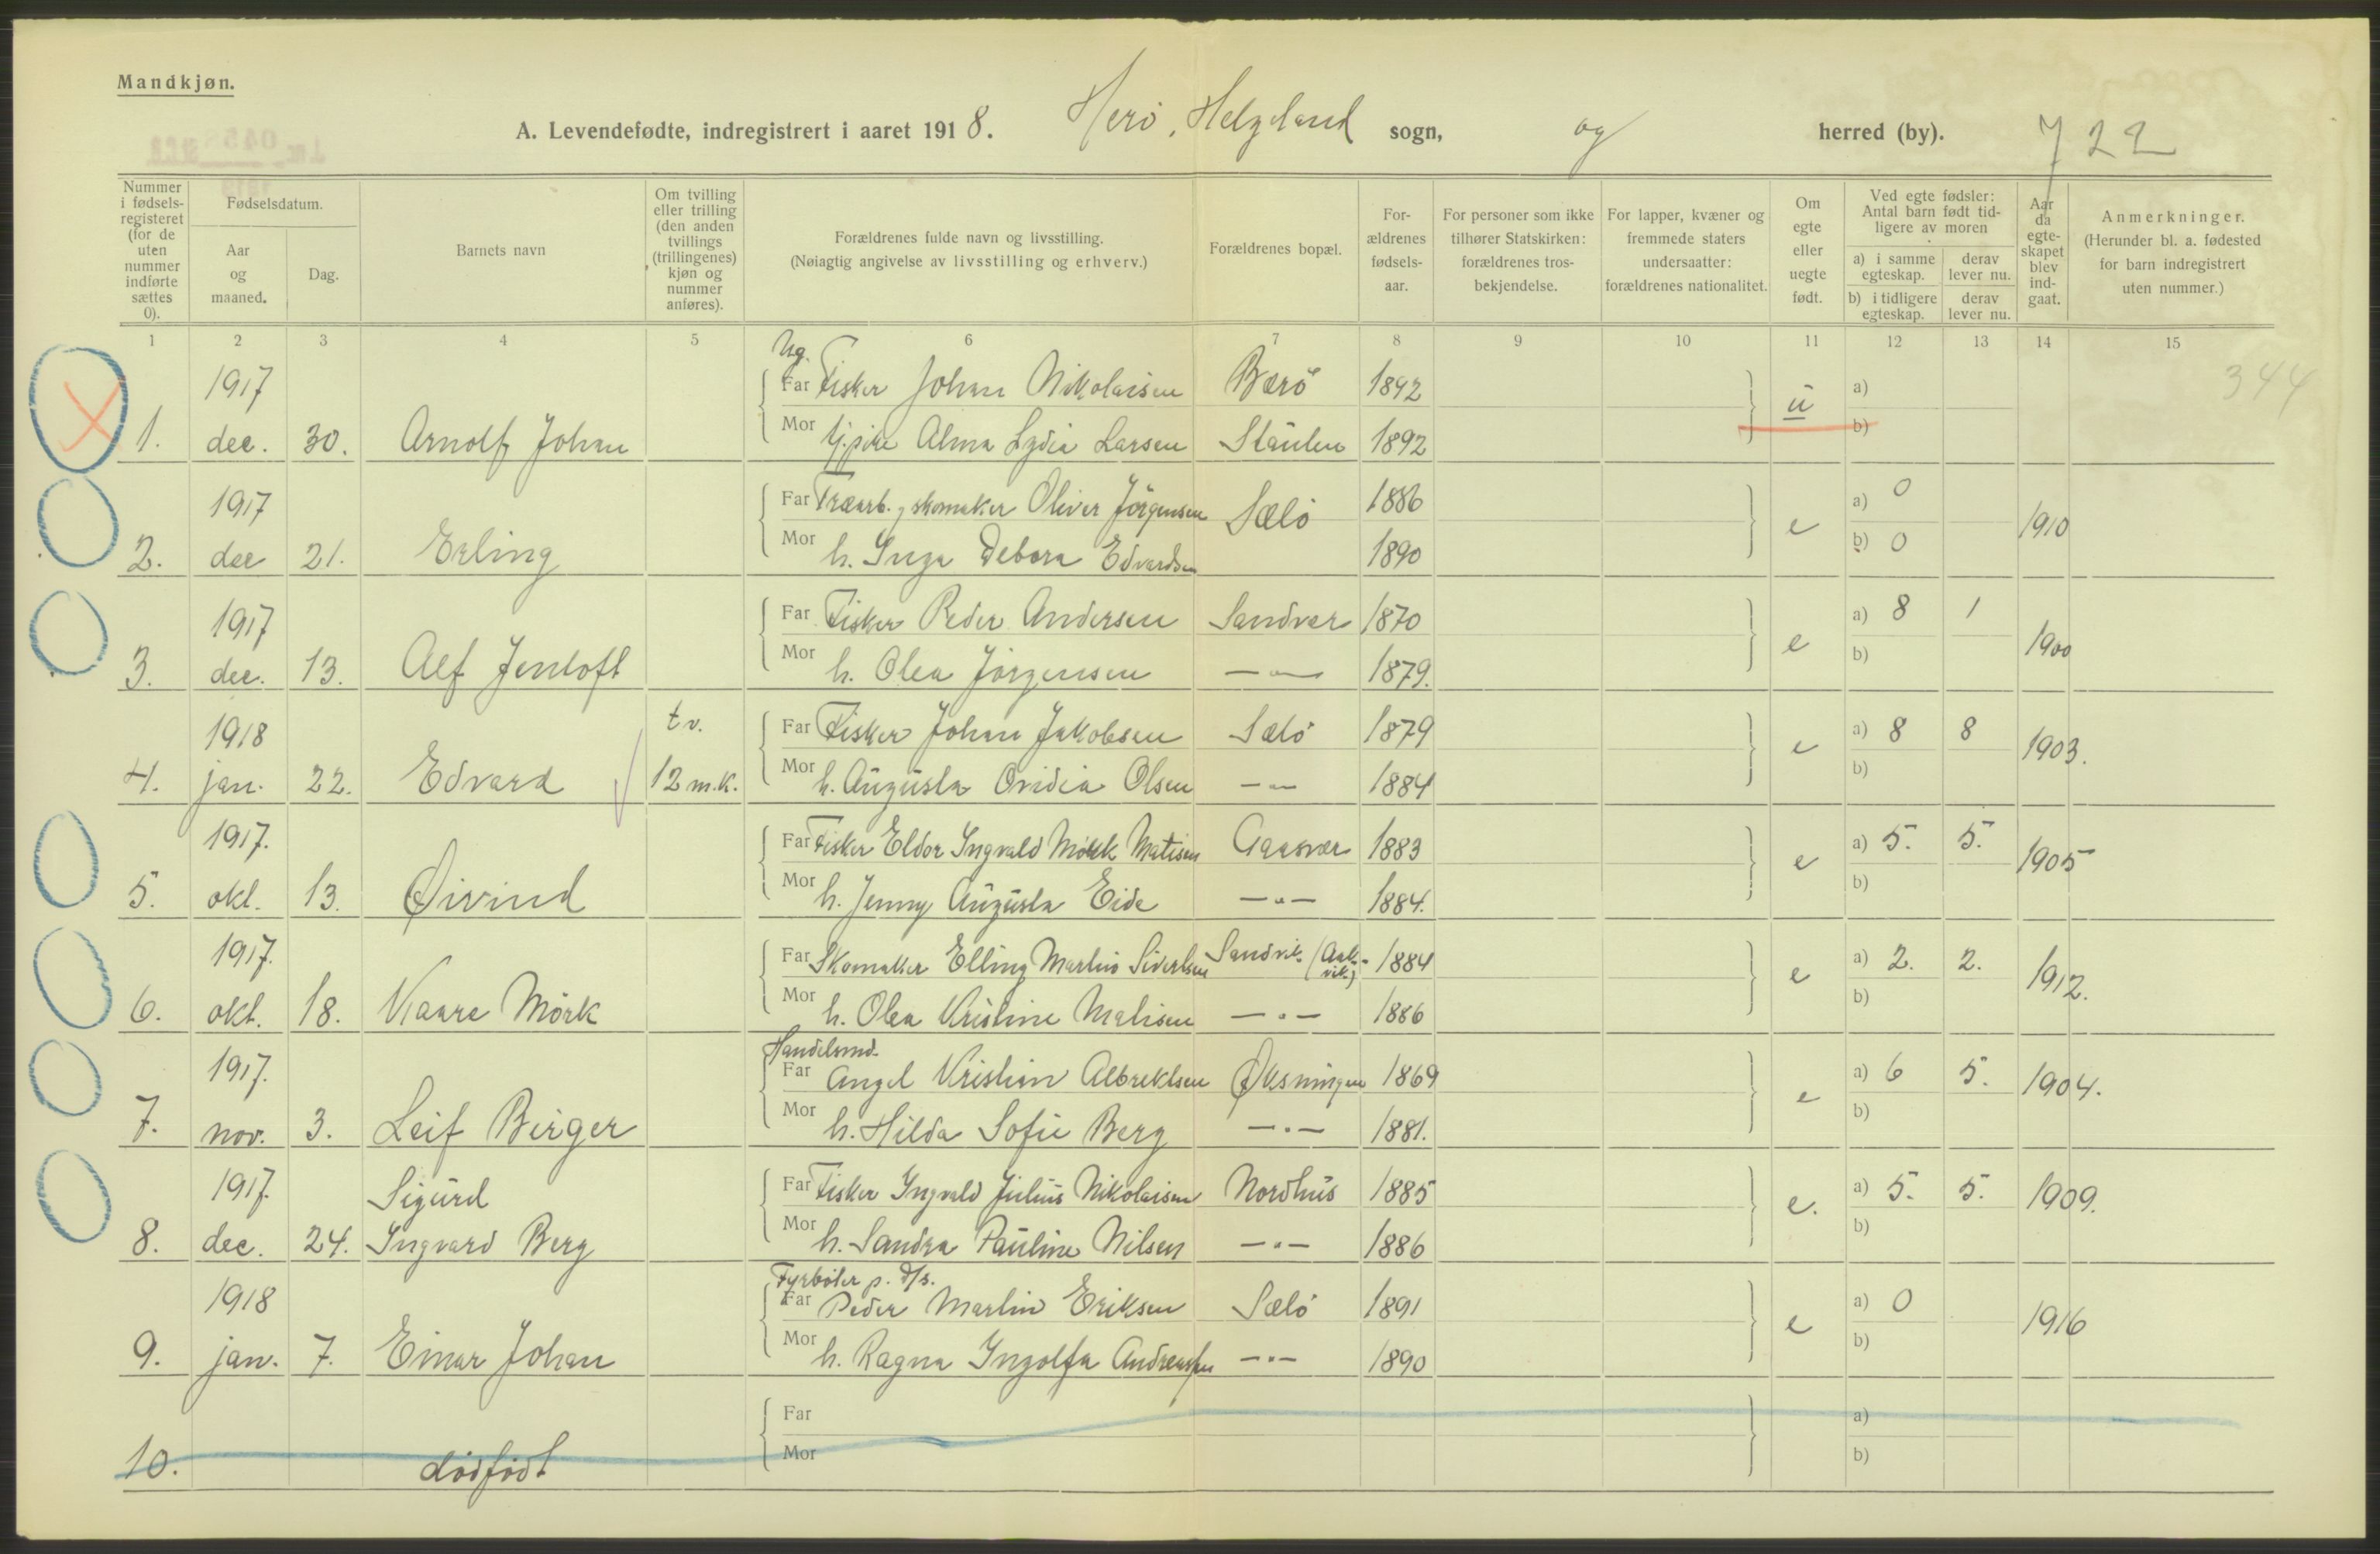 Mandkjøn.
A. Levendefødte, indregistrert i aaret 1918. Herö, Helgeland sogn, og herred (by). 722
Nummer i fødsels-registeret (for de uten nummer indførte sættes 0).
Fødselsdatum.
Aar og maaned.
Dag.
Barnets navn
Om tvilling eller trilling (den anden tvillings (trillingenes) kjøn og nummer anføres).
Forældrenes fulde navn og livsstilling.
(Nøiagtig angivelse av livsstilling og erhverv.)
Forældrenes bopæl.
For-ældrenes fødsels-aar.
For personer som ikke tilhører Statskirken: forældrenes tros-bekjendelse.
For lapper, kvæner og fremmede staters undersaatter: forældrenes nationalitet.
Om egte eller uegte født.
Ved egte fødsler: Antal barn født tid-ligere av moren
a) i samme egteskap.
derav lever nu.
b) i tidligere egteskap.
derav lever nu.
Aar da egte-skapet blev ind-gaat.
Anmerkninger.
(Herunder bl. a. fødested for barn indregistrert uten nummer.)
1 2 3 4 5 6 7 8 9 10 11 12 13 14 15
344
Ug.
1917 Far Fisker Johan Nikolaisen Bærö 1892 u a)
1. dec. 30. Arnolf Johan Mor tj.pike Alma Lydia Larsen Staulen 1892 b)
1917 Far Træarb. og skomaker Oliver Jörgensen Sælö 1886 e a) 0 1910
2. dec 21. Erling Mor h. Inga Debora Edvardsen 1890 b) 0
1917 Far Fisker Peder Andersen Sandvær 1870 e a) 8 1 1900
3. dec. 13. Alf Jentoft Mor h. Olea Jörgensen —„— 1879. b)
1918 tv. Far Fisker Johan Jakobsen Sælö 1879 e a) 8 8 1903.
4. jan. 22. Edvard 12 m.k. Mor h. Augusta Ovidia Olsen —„— 1884 b)
1917. Far Fisker Eldor Ingvald Mörk Matisen Gaasvær 1883 e a) 5. 5. 1905
5. okt. 13. Øivind Mor h. Jenny Augusta Eide —„— 1884. b)
1917. Far Skomaker Elling Martin Sivertsen Sandvik. 1884 e a) 2. 2. 1912.
6. okt. 18. Kaare Mörk Mor h. Olea Kristine Matisen —„— 1886 b)
Handelsmd.
1917. Far Angel Kristian Albrektsen Øksningen 1869 e a) 6 5. 1904.
7. nov. 3. Leif Birger Mor h. Hilda Sofie Berg —„— 1881. b)
1917. Sigurd Far Fisker Ingvald Julius Nikolaisen Nordhus 1885 e. a) 5. 5. 1909.
8. dec. 24. Ingvard Berg Mor h. Sandra Pauline Nilsen —„— 1886 b)
Fyrböter p. d/s.
1918 Far Peder Martin Eriksen Sælö 1891 e a) 0 1916
9. jan. 7. Einar Johan Mor h. Ragna Ingolfa Andreassen —„— 1890 b)
Far a)
10. dödfödt Mor b)